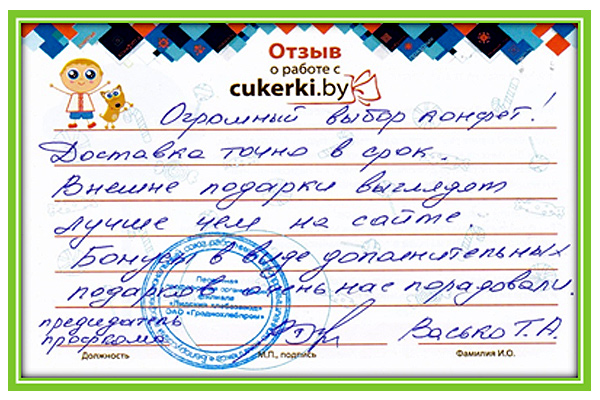 Отзыв
о работе с
cukerki.by
Огромный выбор конфет!
Доставка точно в срок.
Внешне подарки выглядят
лучше чем на сайте.
Бонусы в виде дополнительных
подарков очень нас порадовали.
председатель
профкома
Васько Т.А.
Должность
М.П., подпись
Фамилия И.О.
Первичная
филиала
"Лидский хлебозавод"
ОАО "Гроднохлебпром"